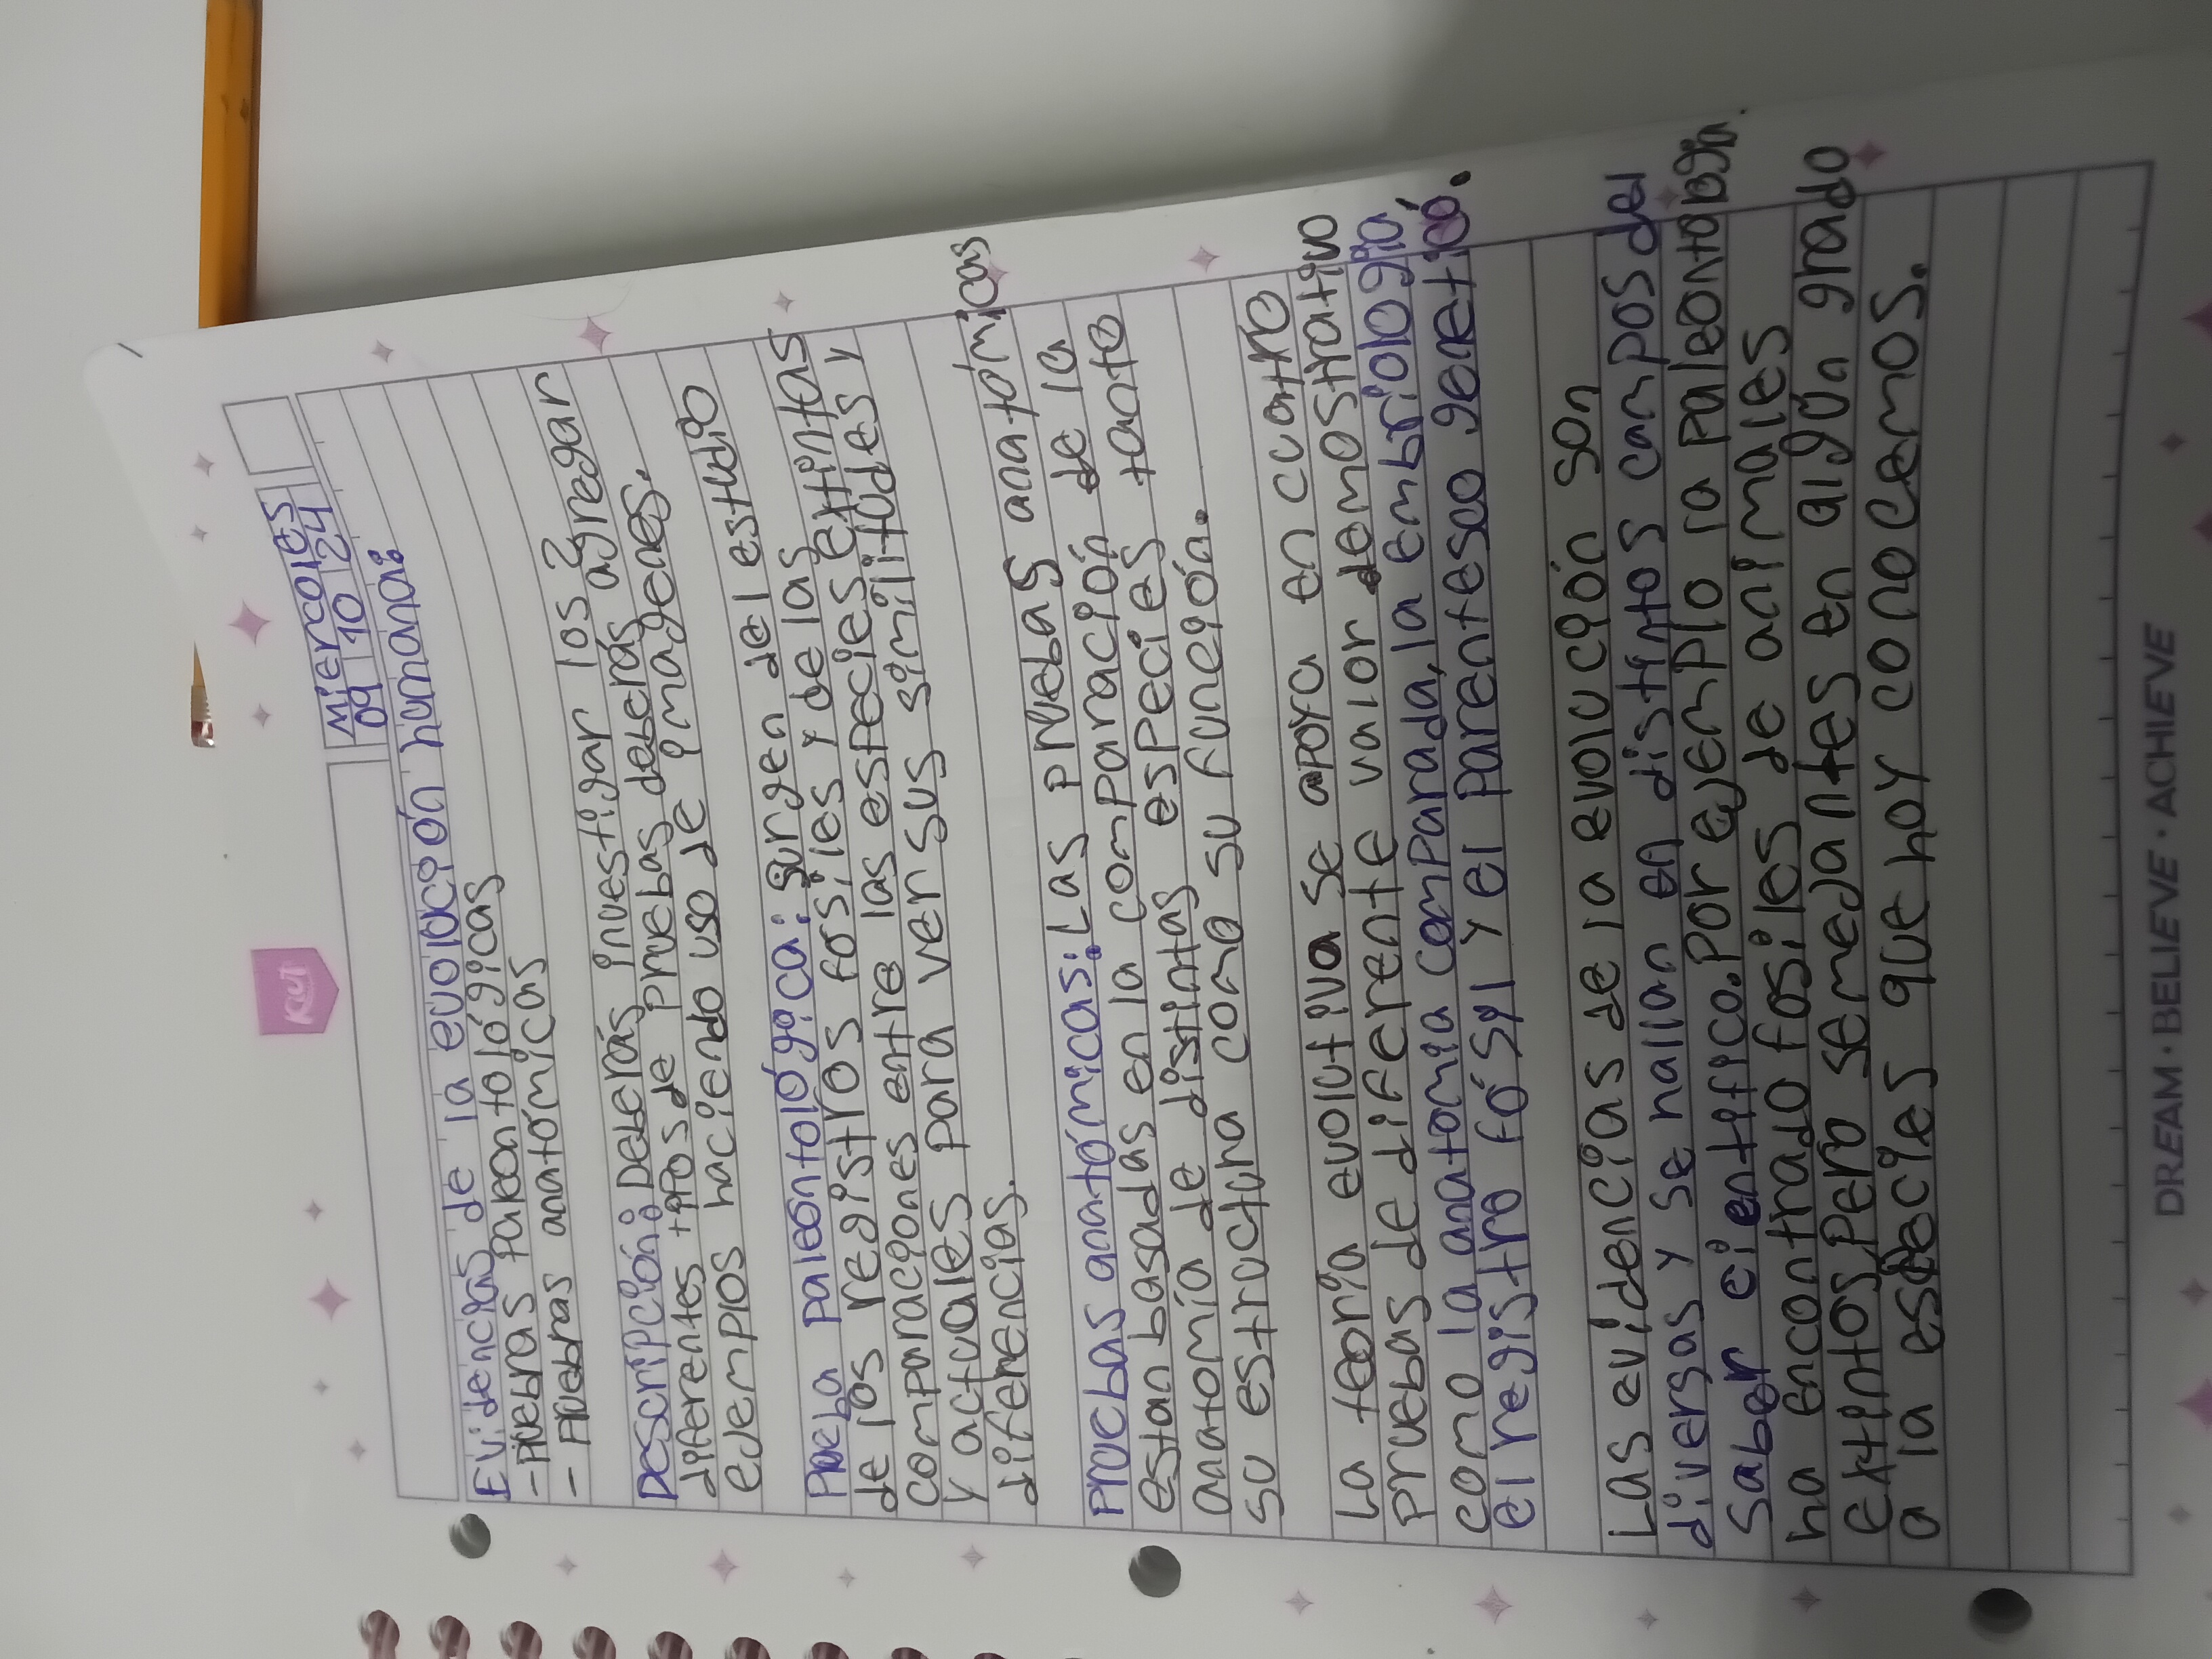 Miercoles
09 10 24
Evidencias de la evolución humana:
- Pruebas paleontológicas
- Pruebas anatómicas
Descripción: Deberás investigar los 2
diferentes tipos de pruebas deberás agregar
ejemplos haciendo uso de imagenes.
Prueba paleontológica: surgen del estudio
de los registros fosiles y de las extintas
comparaciones entre las especies extintas
y actuales para ver sus similitudes y
diferencias.
Pruebas anatómicas: Las pruebas anatómicas
estan basadas en la comparación de la
anatomía de distintas especies tanto
su estructura como su función.
La teoria evolutiva se apoya en cuatro
pruebas de diferente valor demostrativo
como la anatomia comparada, la embriologia,
el registro fósil y el parentesco genetico.
Las evidencias de la evolución son
diversas y se hallan en distintos campos del
saber cientifico. Por ejemplo la paleontologia
ha encontrado fosiles de animales
extintos pero semejantes en algún grado
a la especies que hoy conocemos.
DREAM · BELIEVE · ACHIEVE